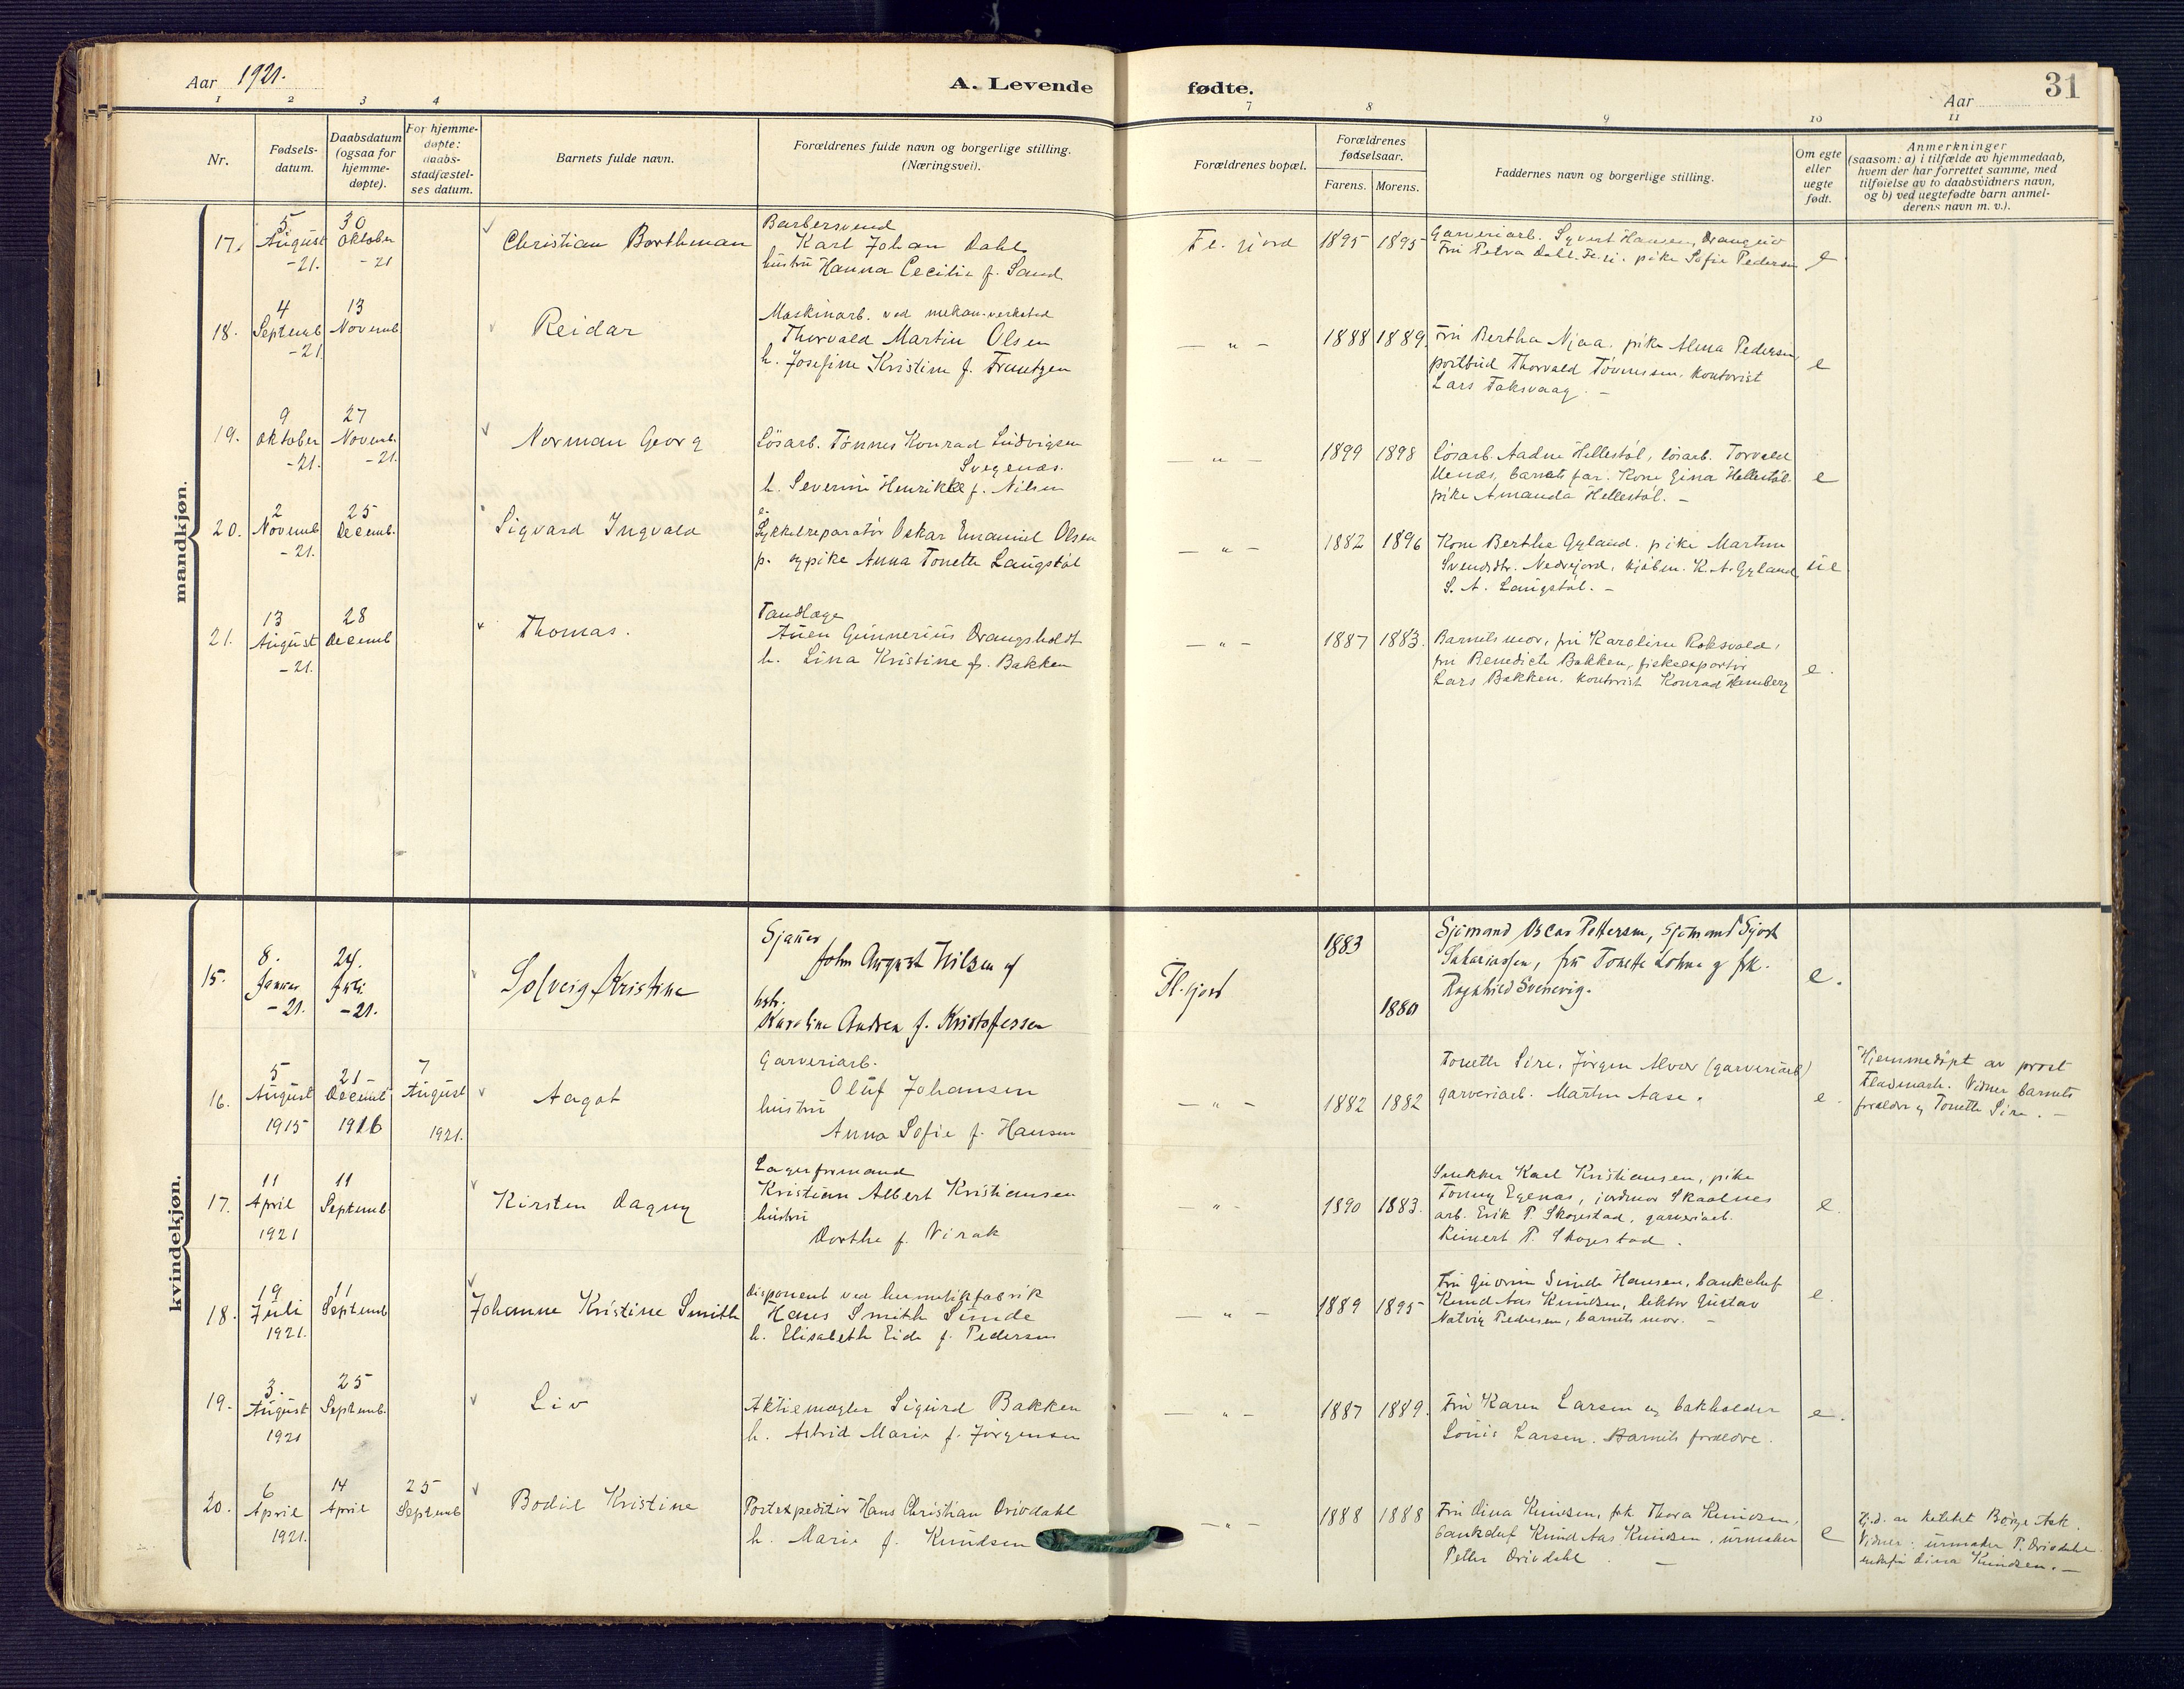 Aar 1921.
A. Levende fødte.
Aar
31
1 2 3 4 7 8 9 10 11
Nr.
Fødsels-
datum.
Daabsdatum
(ogsaa for
hjemme-
døpte).
For hjemme-
døpte:
daabs-
stadfæstel-
ses datum.
Barnets fulde navn.
Forældrenes fulde navn og borgerlige stilling.
(Næringsvei).
Forældrenes bopæl.
Forældrenes
fødselsaar.
Farens. Morens.
Faddernes navn og borgerlige stilling.
Om egte
eller
uegte
født.
Anmerkninger
(saasom: a) i tilfælde av hjemmedaab,
hvem der har forrettet samme, med
tilføielse av to daabsvidners navn,
og b) ved uegtefødte barn anmel-
derens navn m. v.).
mandkjøn.
17.
5
August
-21.
30
Oktober
-21
Christian Borthman
Barbersvend
Karl Johan Dahl
hustru Hanna Cecilie f. Sand
Fl. fjord
1895 1895
Garveriarb. Syvert Hansen,
Fru Petra Dahl. pike Sofie Pedersen
e
18.
4
Septemb
-21
13
Novemb
Reidar
Maskinarb. ved mekan. verksted
Thorvald Martin Olsen
h. Josefine Kristine f. Frantzen
— " —
1888 1889
Fru Bertha Njaa. pike Alma Pedersen,
postbud Thorvald Tønnessen. kontorist
Lars Taksvaag. —
e
19.
9
Oktober
-21.
27
Novemb.
-21.
Norman Georg
Løsarb. Tønnes Konrad Ludvigsen
Svegenæs.
h. Severine Henrikke f. Nilsen
— " —
1899 1898
Løsarb. Aadne Hellestøl, løsarb. Torvald
barnets far. Kone Gina Hellestøl
pike Amanda Hellestøl. —
e
20.
2
Novemb
-21.
25
Decemb.
Sigvard Ingvald
Sykkelreparatør Oskar Emanuel Olsen
p. og pike Anna Tonette Langstøl
— " —
1882 1896
Kone Berthe Gyland. pike Martine
Svendsdtr. Nedrejord, kjøbm. K. A. Gyland,
S. A. Langstøl. —
ue
21.
13
August
-21.
28
Decemb
Thomas.
Tandlæge
Auen Gunnerius Drangsholdt
h. Lina Kristine f. Bakken
— " —
1887 1883.
Barnets mor, fru Karoline Roksvold,
fru Benedicte Bakken, fiskeexportør
Lars Bakken. kontorist Konrad Hemberg
e.
kvindekjøn.
15.
8.
Januar
-21.
24.
Juli
-21.
Solveig Kristine
Sjauer
John August Nilsen og
hstr.
Karoline Andrea f. Kristoffersen
Fl. fjord
1883
1880
Sjømand Oscar Pettersen, Sjømand Sjort
Sakariassen, fru Tonette Lohne og frk.
Ragnhild Svenevig.
e.
16.
5
August
1915
21
Decemb
1916
7
August
1921.
Aagot
Garveriarb.
Oluf Johansen
hustru
Anna Sofie f. Hansen
— " —
1882 1882
Tonette Sire, Jørgen Alver (garveriarb)
garveriarb. Martin Aase.
e.
Hjemmedøpt av prost
Fladmark. Vidner barnets
forældre og Tonette Sire. —
17.
11
April
1921
11
Septemb
Kirsten Dagny
Lagerformand
Kristian Albert Kristiansen
hustru
Dorthe f. Virak
— " —
1890 1883.
Snekker Karl Kristiansen, pike
Tonny Egenæs, jordmor Skaalnes
arb. Erik P. Skogestad, garveriarb.
Reinert P. Skogestad.
e.
18.
19
Juli
1921.
11
Septemb
Johanne Kristine Smith
Disponent ved hermetikfabrik
Hans Smith Sunde
h. Elisabeth Eide f. Pedersen
— " —
1889 1895
Fru Sunde Hansen, bankchef
Knud Aas Knudsen, lektor Gustav
Natvig Pedersen, barnets mor. —
e.
19.
3.
August
1921
25
Septemb.
Liv
Aktiemægler Sigurd Bakken
h. Astrid Marie f. Jørgensen
— " —
1887 1889.
Fru Karen Larsen og bokholder
Louis Larsen. Barnets forældre.
e.
20.
6
April
1921.
14
April
25
Septemb
Bodil Kristine
Postexpeditør Hans Christian Drivdahl
h. Marie f. Knudsen
— " —
1888 1888
Fru Dina Knudsen, frk Thora Knudsen,
bankchef Knud Aas Knudsen, urmaker
Petter Drivdahl. —
e
Hj.d. av kateket Børge Ask.
Vidner: urmaker P. Drivdahl
Dina Knudsen. —